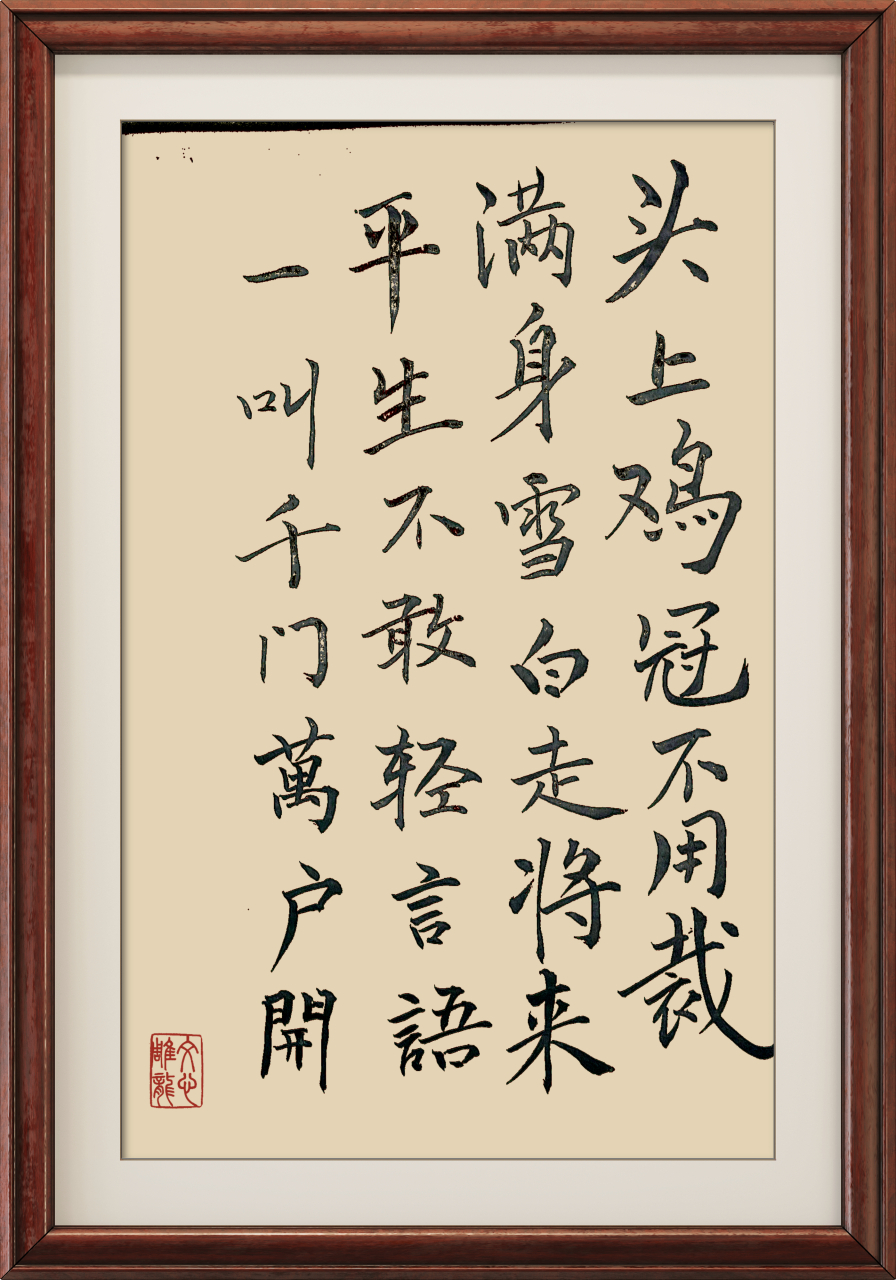 头上鸡冠不用裁
满身雪白走将来
平生不敢轻言語
一叫千门萬户開
文心雕龍